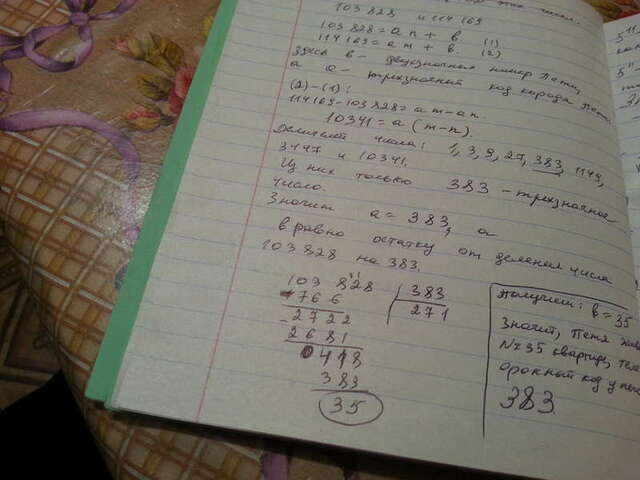 этих числа.
103 828 и 114 169
103 828 = an + в (1)
114 169 = am + в. (2)
здесь в - двухзначный номер Пети,
а a - трехзначный код города Пети.
(2) - (1):
114 169 - 103 828 = am - an.
10341 = a (m - n).
Делители числа: 1, 3, 9, 27, 383, 1149,
3447 и 10341.
Из них только 383 - трехзначное
число.
Значит a = 383, а
в равно остатку от деления числа
103 828 на 383.
103 828 383
766 271
- 2722
2681
0418
383
35
Получим: в = 35
Значит, Петя
№ 35 квартире,
код у них
383
5 11
5 11